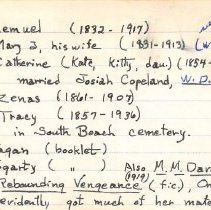 emuel (1832 - 1917)
Mary J, his wife (1831-1913) (w
Catherine (Kate, Kitty, dau.) (1854-
married Josiah Copeland, W. D.
Zenas (1861 - 1907)
Tracy (1857 - 1936)
in South Beach cemetery.
agan (booklet)
garty ( " ) Also M. M. Dan
(1919)
Rebounding Vengeance (fic), On
evidently got much of her mate